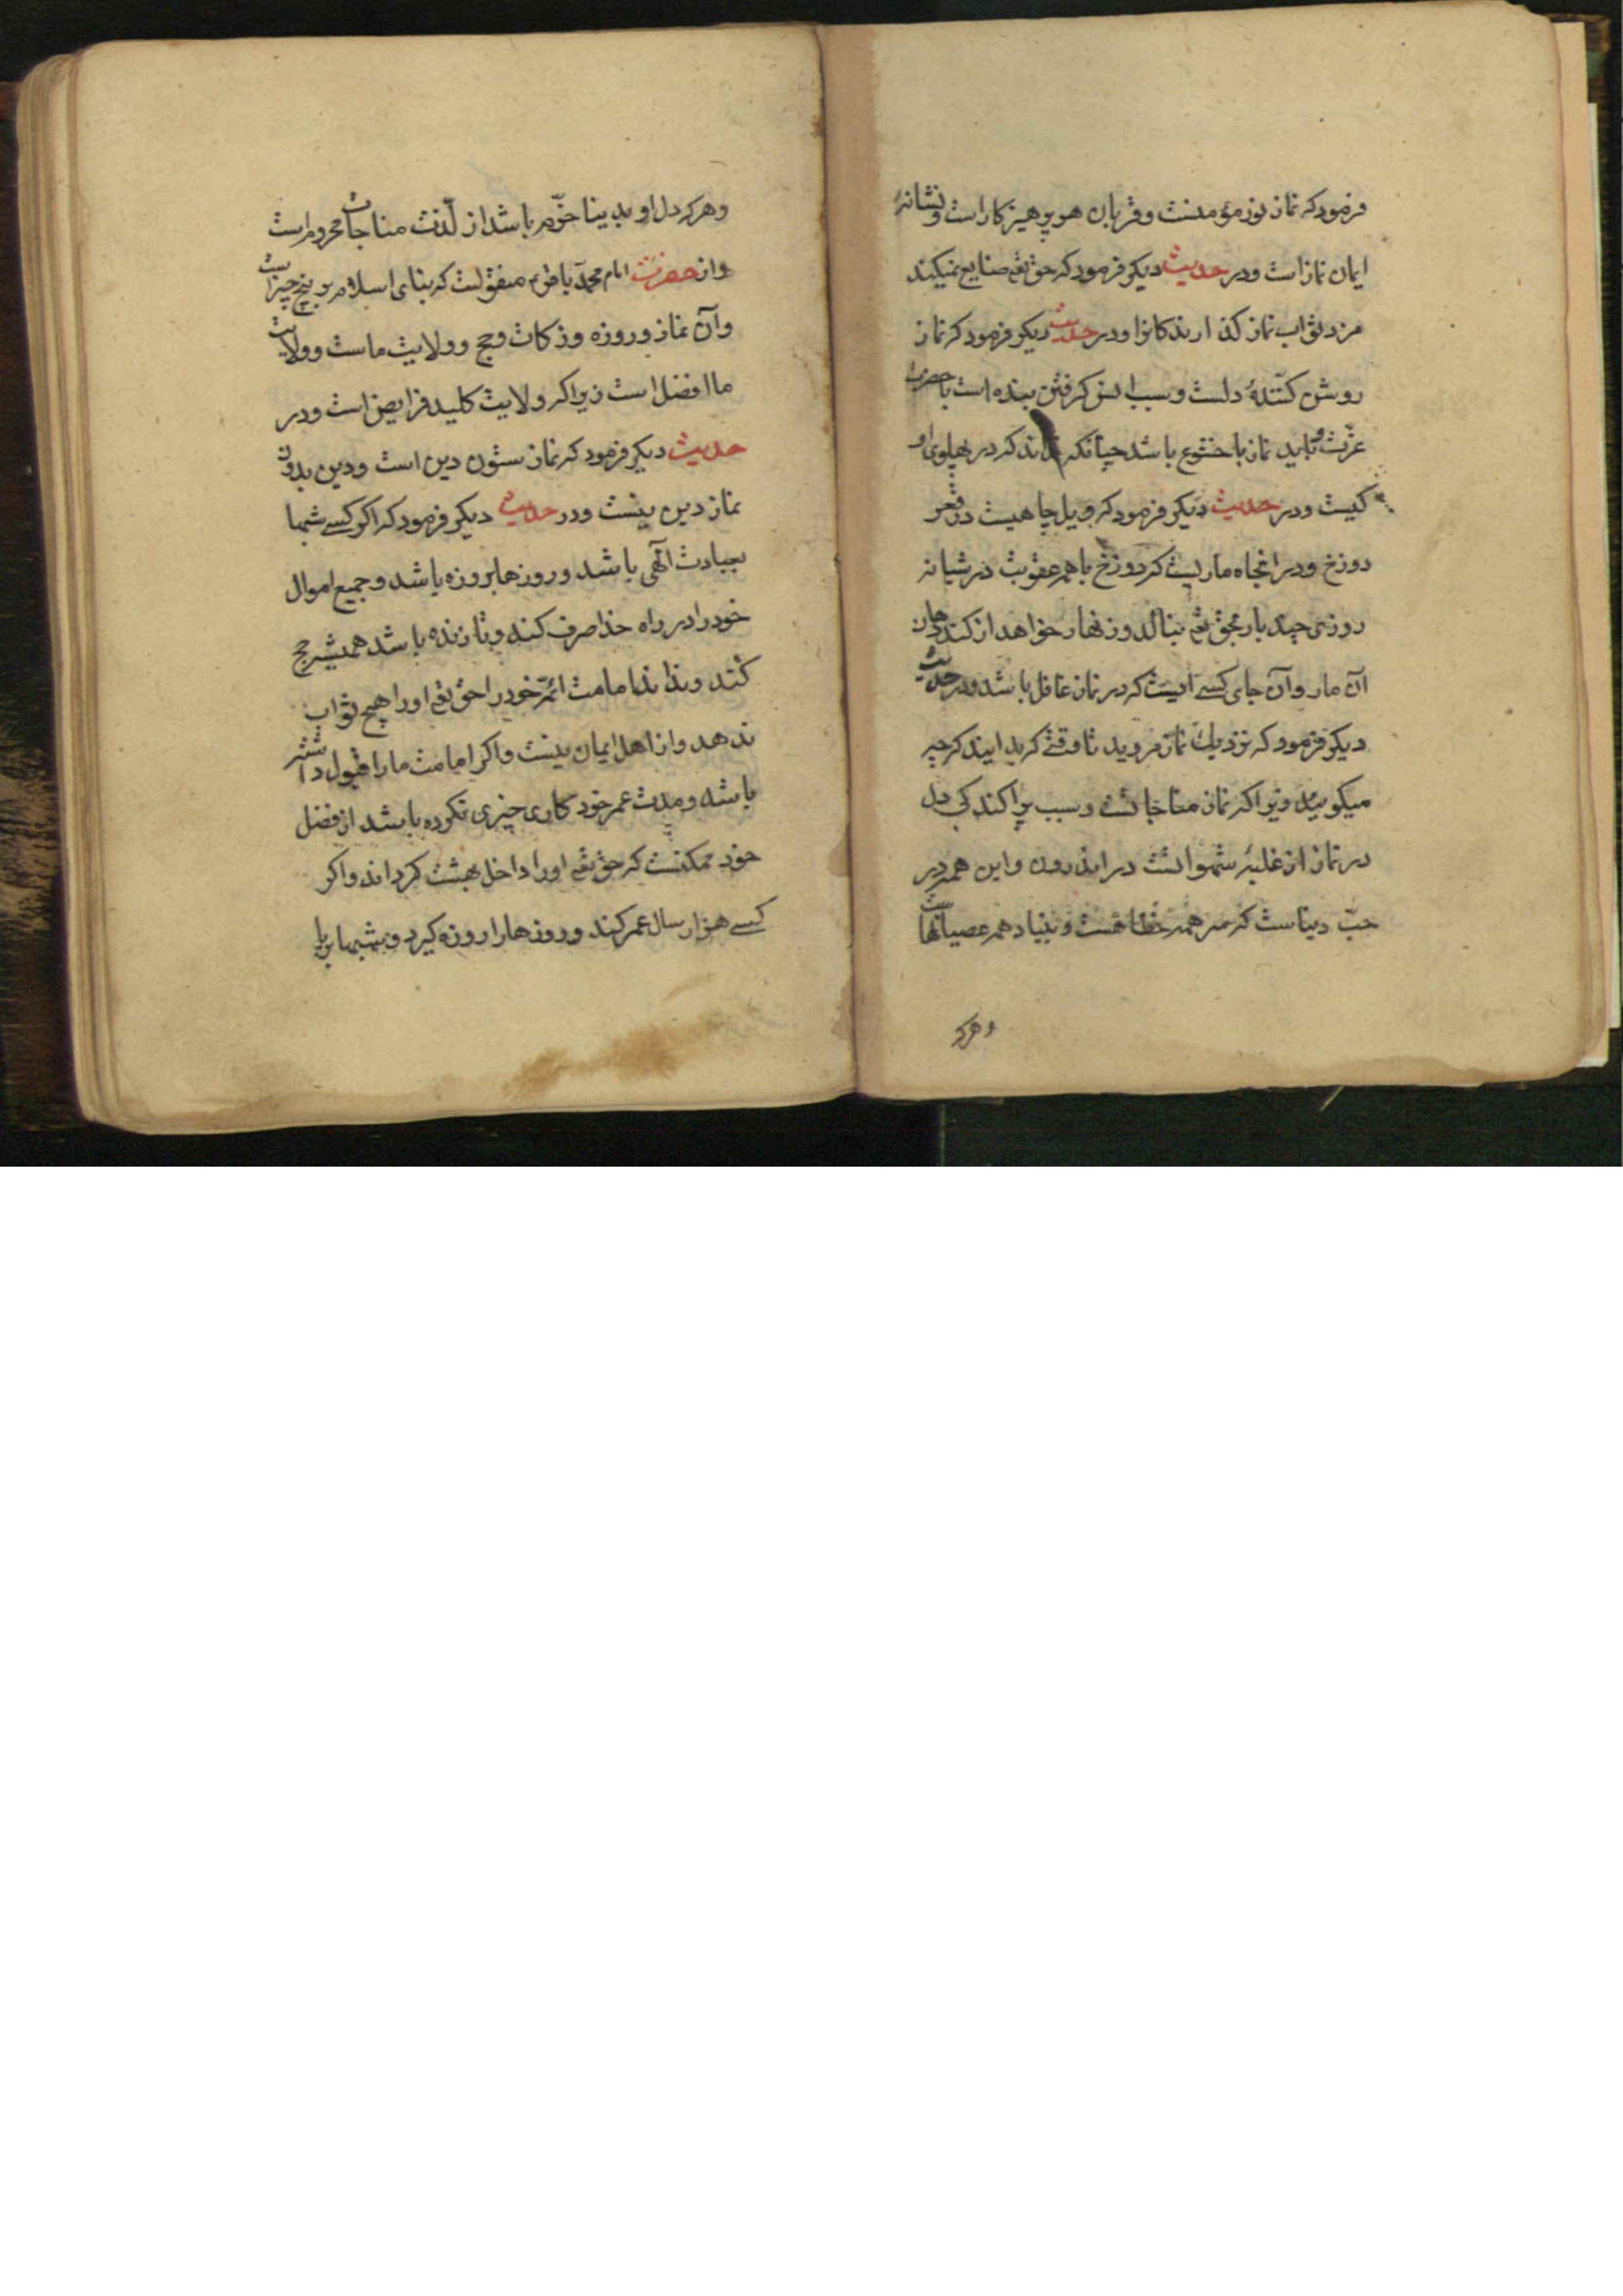 فرمود که نماز نور مؤمنست و قربان هر پرهیزکار است و نشانهٔ
ایمان نماز است و در حدیث دیکر فرمود که حق تع ضایع نمیکند
مزد ثواب نماز کذارندکانرا و در حدیث دیکر فرمود که نماز
روشن کنندهٔ دلست و سبب انس کرفتن بنده است با حضرت
عزّت و باید نماز با خشوع باشد چنانکه نداند که در پهلوی او
کیست و در حدیث دیکر فرمود که ویل چاهیست در قعر
دوزخ و در انجاه ماریست که دوزخ با همه عقوبت در شبانه
روزی چند بار بحق تع بنالد و زنهار خواهد از کند
آن مار و آن جای کسے است که در نماز غافل باشد و در حدیث
دیکر فرمود که نزدیك نماز مروید تا وقتے که بدانید که چه
میکویید زیرا که نماز مناجاتست و سبب پراکندکی دل
در نماز از غلبهٔ شهوانست در اندرون و این همه در
حبّ دنیاست که سر همه خطاهست و بنیاد همه عصیانهاست
و هرکه
و هرکه دل او بدنیا خوّم باشد از لذّت مناجات محروم است
و از حضرت امام محمّد باقر ع منقولست که بنای اسلام بر پنج چیز است
و آن نماز و روزه و زکات و حج و ولایت ماست و ولایت
ما افضل است زیرا که ولایت کلید فرایض است و در
حدیث دیکر فرمود که نماز ستون دین است و دین بدون
نماز دین نیست و در حدیث دیکر فرمود که اکر کسے شبها
بعبادت الٓهی باشد و روزها بروزه باشد و جمیع اموال
خود را در راه خدا صرف کند و تا زنده باشد همیشه حج
کند و نداند امامت ائمّهٔ خود را حق تع او را هیچ ثواب
ندهد و از اهل ایمان نیست و اکر امامت ما را قبول داشته
باشد و مدت عمر خود کاری خیری نکرده باشد از فضل
خود ممکنست که حق تع او را داخل بهشت کرداند و اکر
کسے هزار سال عمر کند و روزها را روزه کیرد و شبها برپا